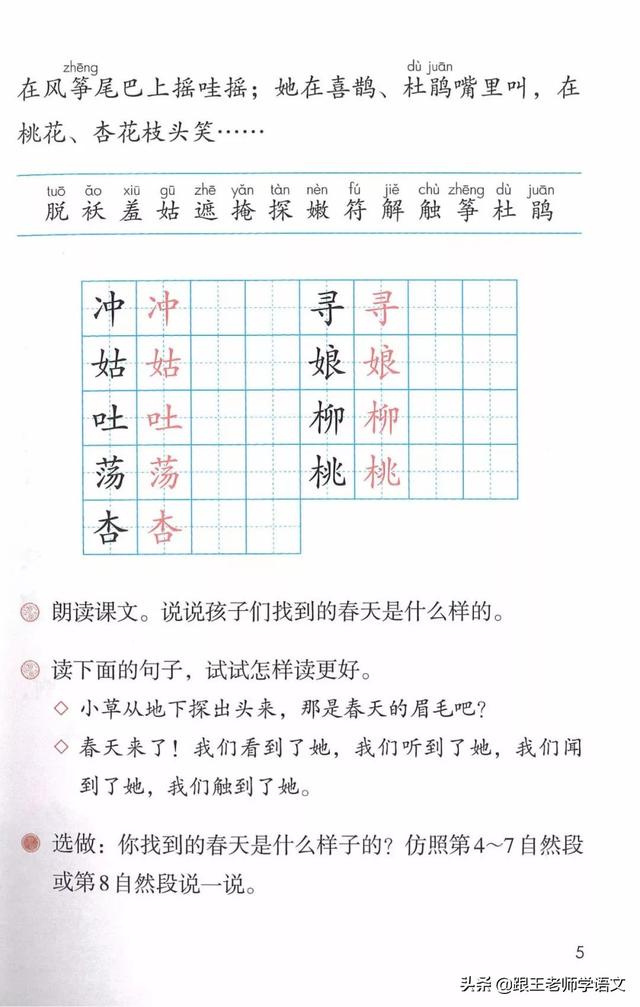 zhēng dù juān
在风筝尾巴上摇哇摇；她在喜鹊、杜鹃嘴里叫，在
桃花、杏花枝头笑……
tuō ǎo xiū gū zhē yǎn tàn nèn fú jiě chù zhēng dù juān
脱 袄 羞 姑 遮 掩 探 嫩 符 解 触 筝 杜 鹃
冲 冲 寻 寻
姑 姑 娘 娘
吐 吐 柳 柳
荡 荡 桃 桃
杏 杏
朗读课文。说说孩子们找到的春天是什么样的。
读下面的句子，试试怎样读更好。
◇ 小草从地下探出头来，那是春天的眉毛吧？
◇ 春天来了！我们看到了她，我们听到了她，我们闻
到了她，我们触到了她。
选做：你找到的春天是什么样子的？仿照第4～7自然段
或第8自然段说一说。
5
头条 @跟王老师学语文